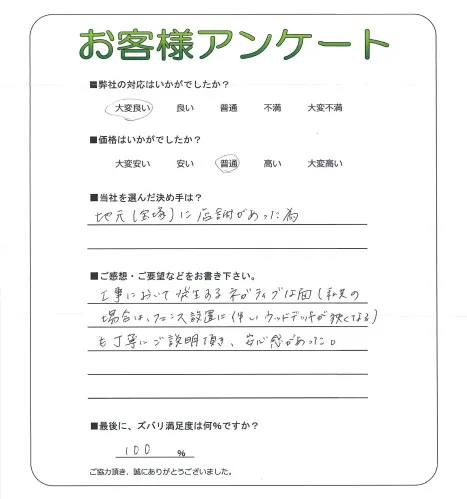 お客様アンケート
■弊社の対応はいかがでしたか？
大変良い 良い 普通 不満 大変不満
■価格はいかがでしたか？
大変安い 安い 普通 高い 大変高い
■当社を選んだ決め手は？
地元（宝塚）に店舗があった為
■ご感想・ご要望などをお書き下さい。
工事において発生するネガティブな面（私共の
場合は、フェンス設置に伴いウッドデッキが狭くなる）
も丁寧にご説明頂き、安心感があった。
■最後に、ズバリ満足度は何％ですか？
100 %
ご協力頂き、誠にありがとうございました。